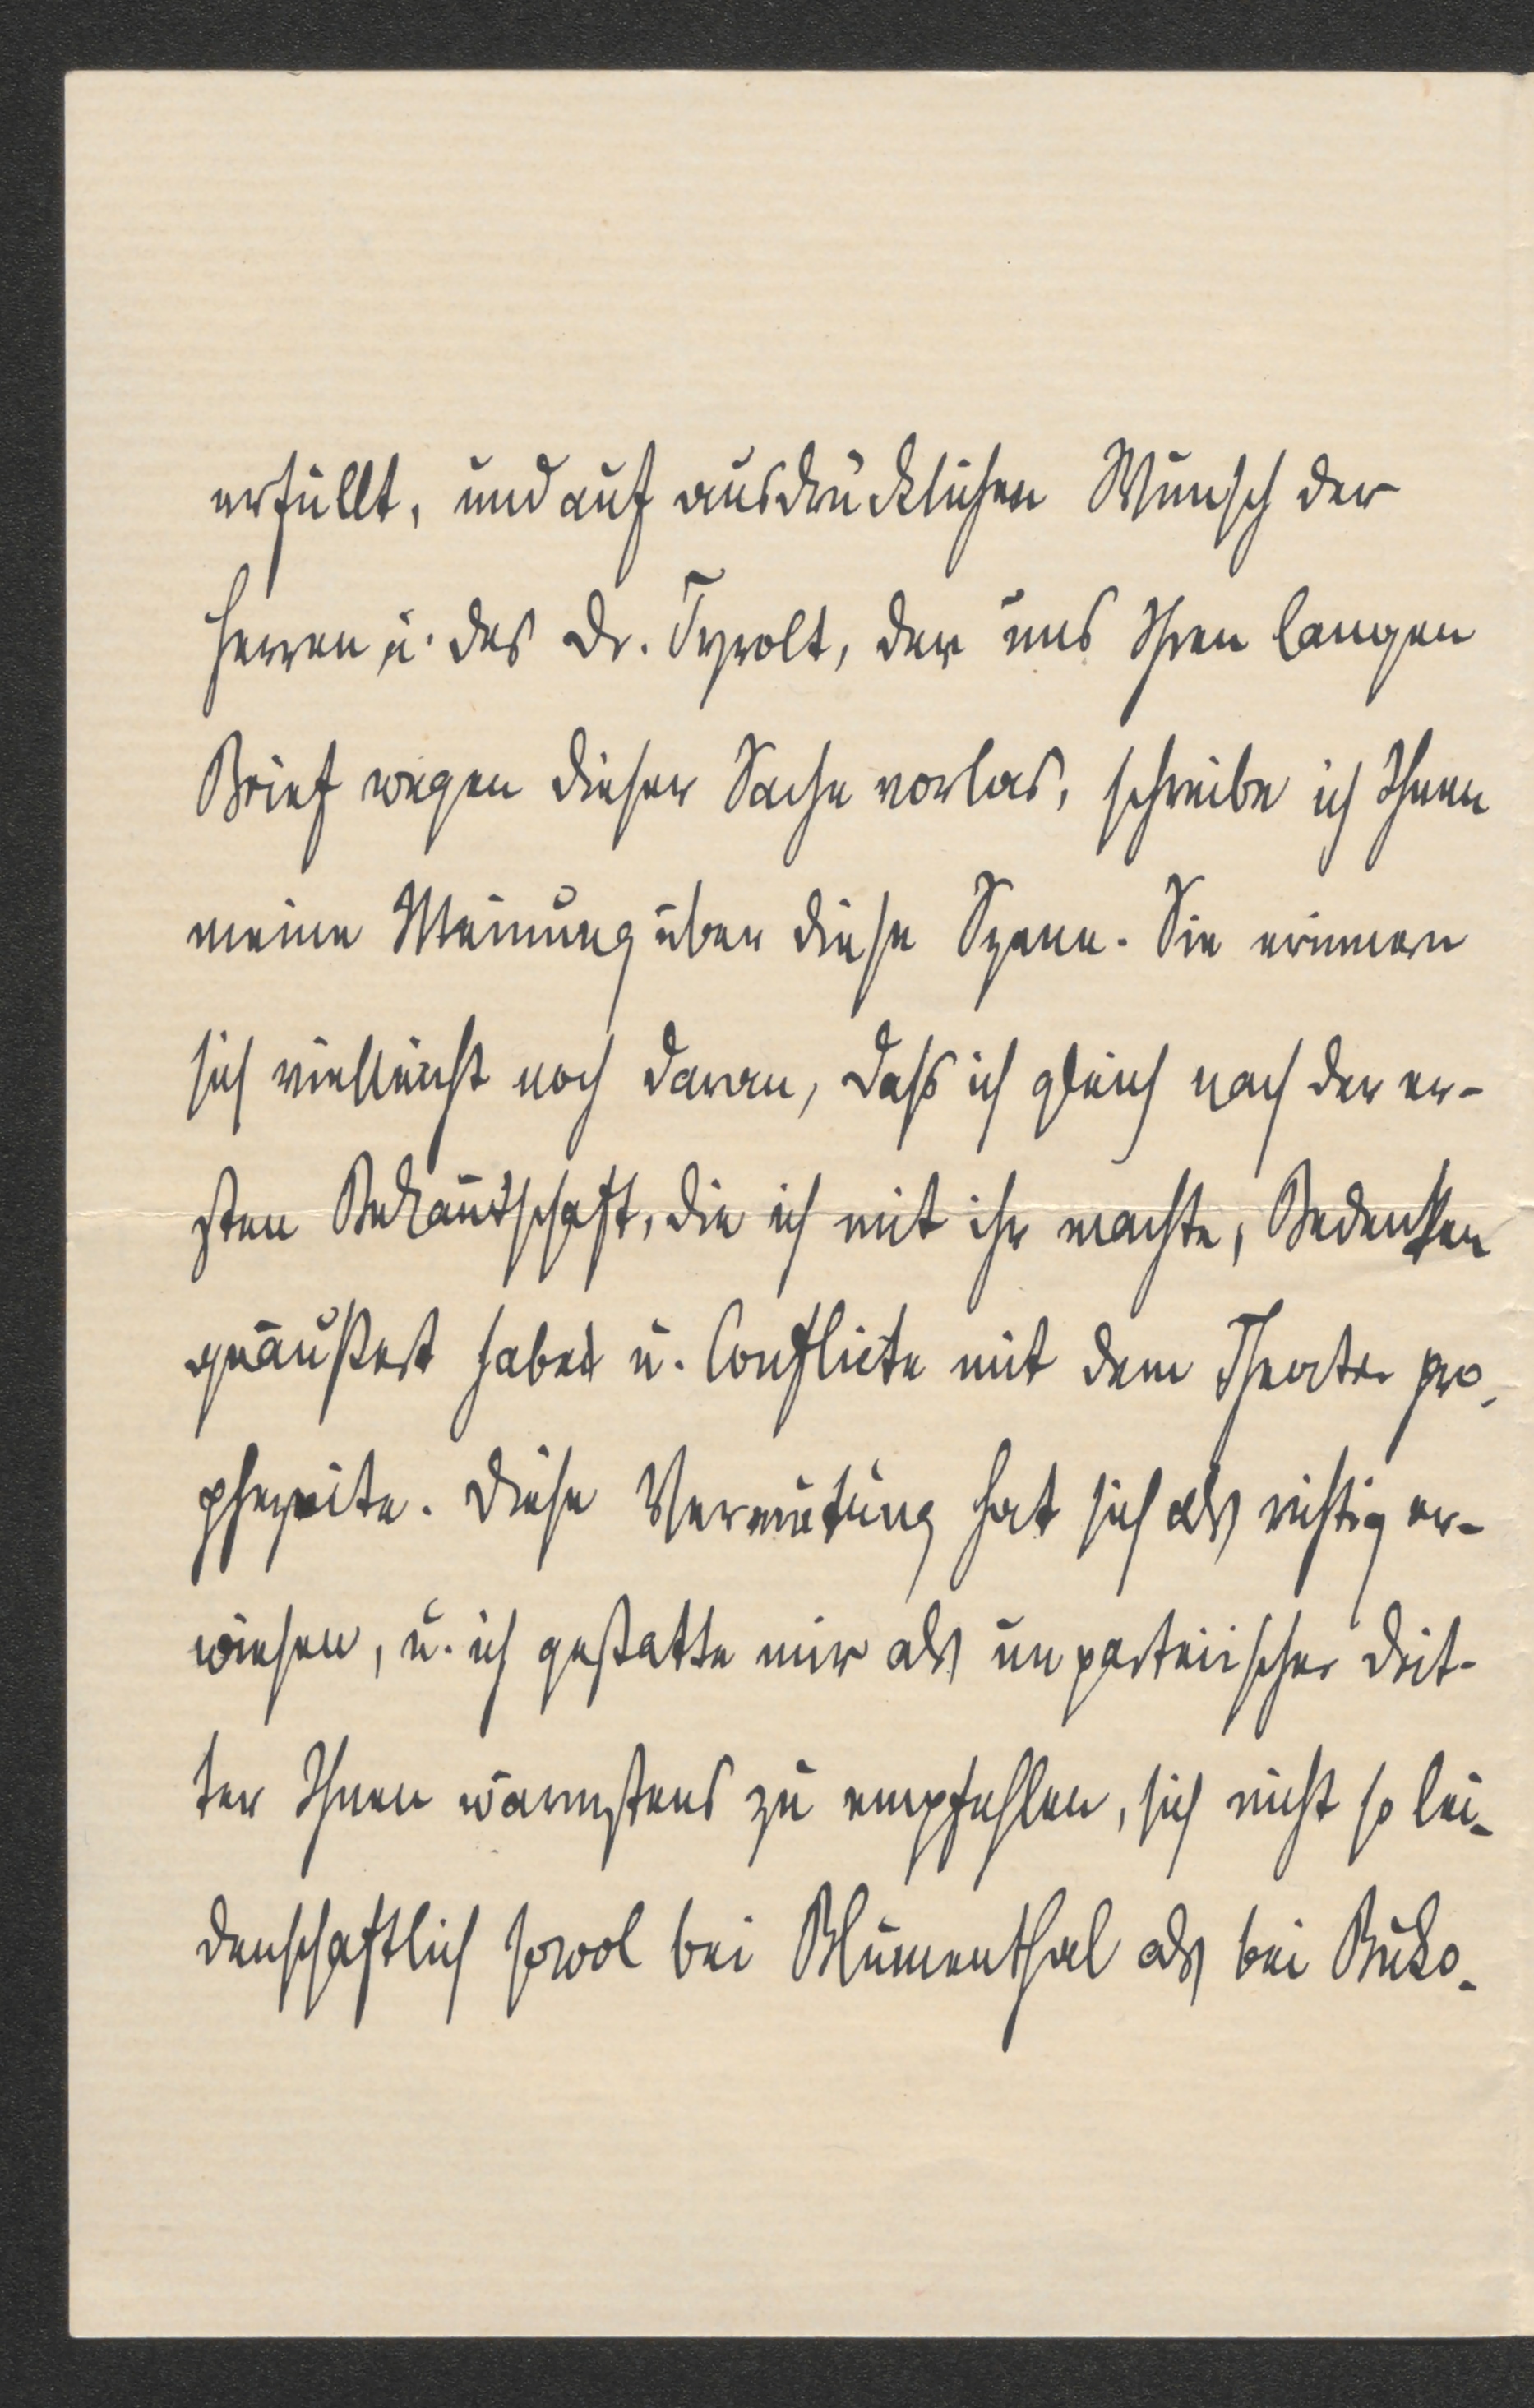 erfüllt, und auf ausdrücklichen Wunsch der
Herren u. des Dr. Tyrolt, der uns Ihren langen
Brief wegen dieser Sache vorlas, schreibe ich Ihnen
meine Meinung über diese Szene. Sie erinnern
sich vielleicht noch daran, dass ich gleich nach der er-
sten Bekanntschaft, die ich mit ihr machte, Bedenken
geäußert habe u. Conflicte mit dem Theater pro-
phezeite. Diese Vermutung hat sich als richtig er-
wiesen, u. ich gestatte mir als unparteiischer Drit-
ter Ihnen wärmstens zu empfehlen, sich nicht so lei-
denschaftlich sowol bei Blumenthal als bei Buko-